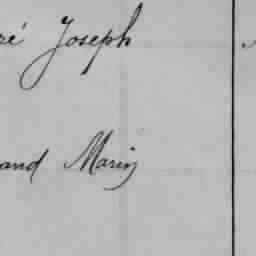 ré Joseph
and Marin